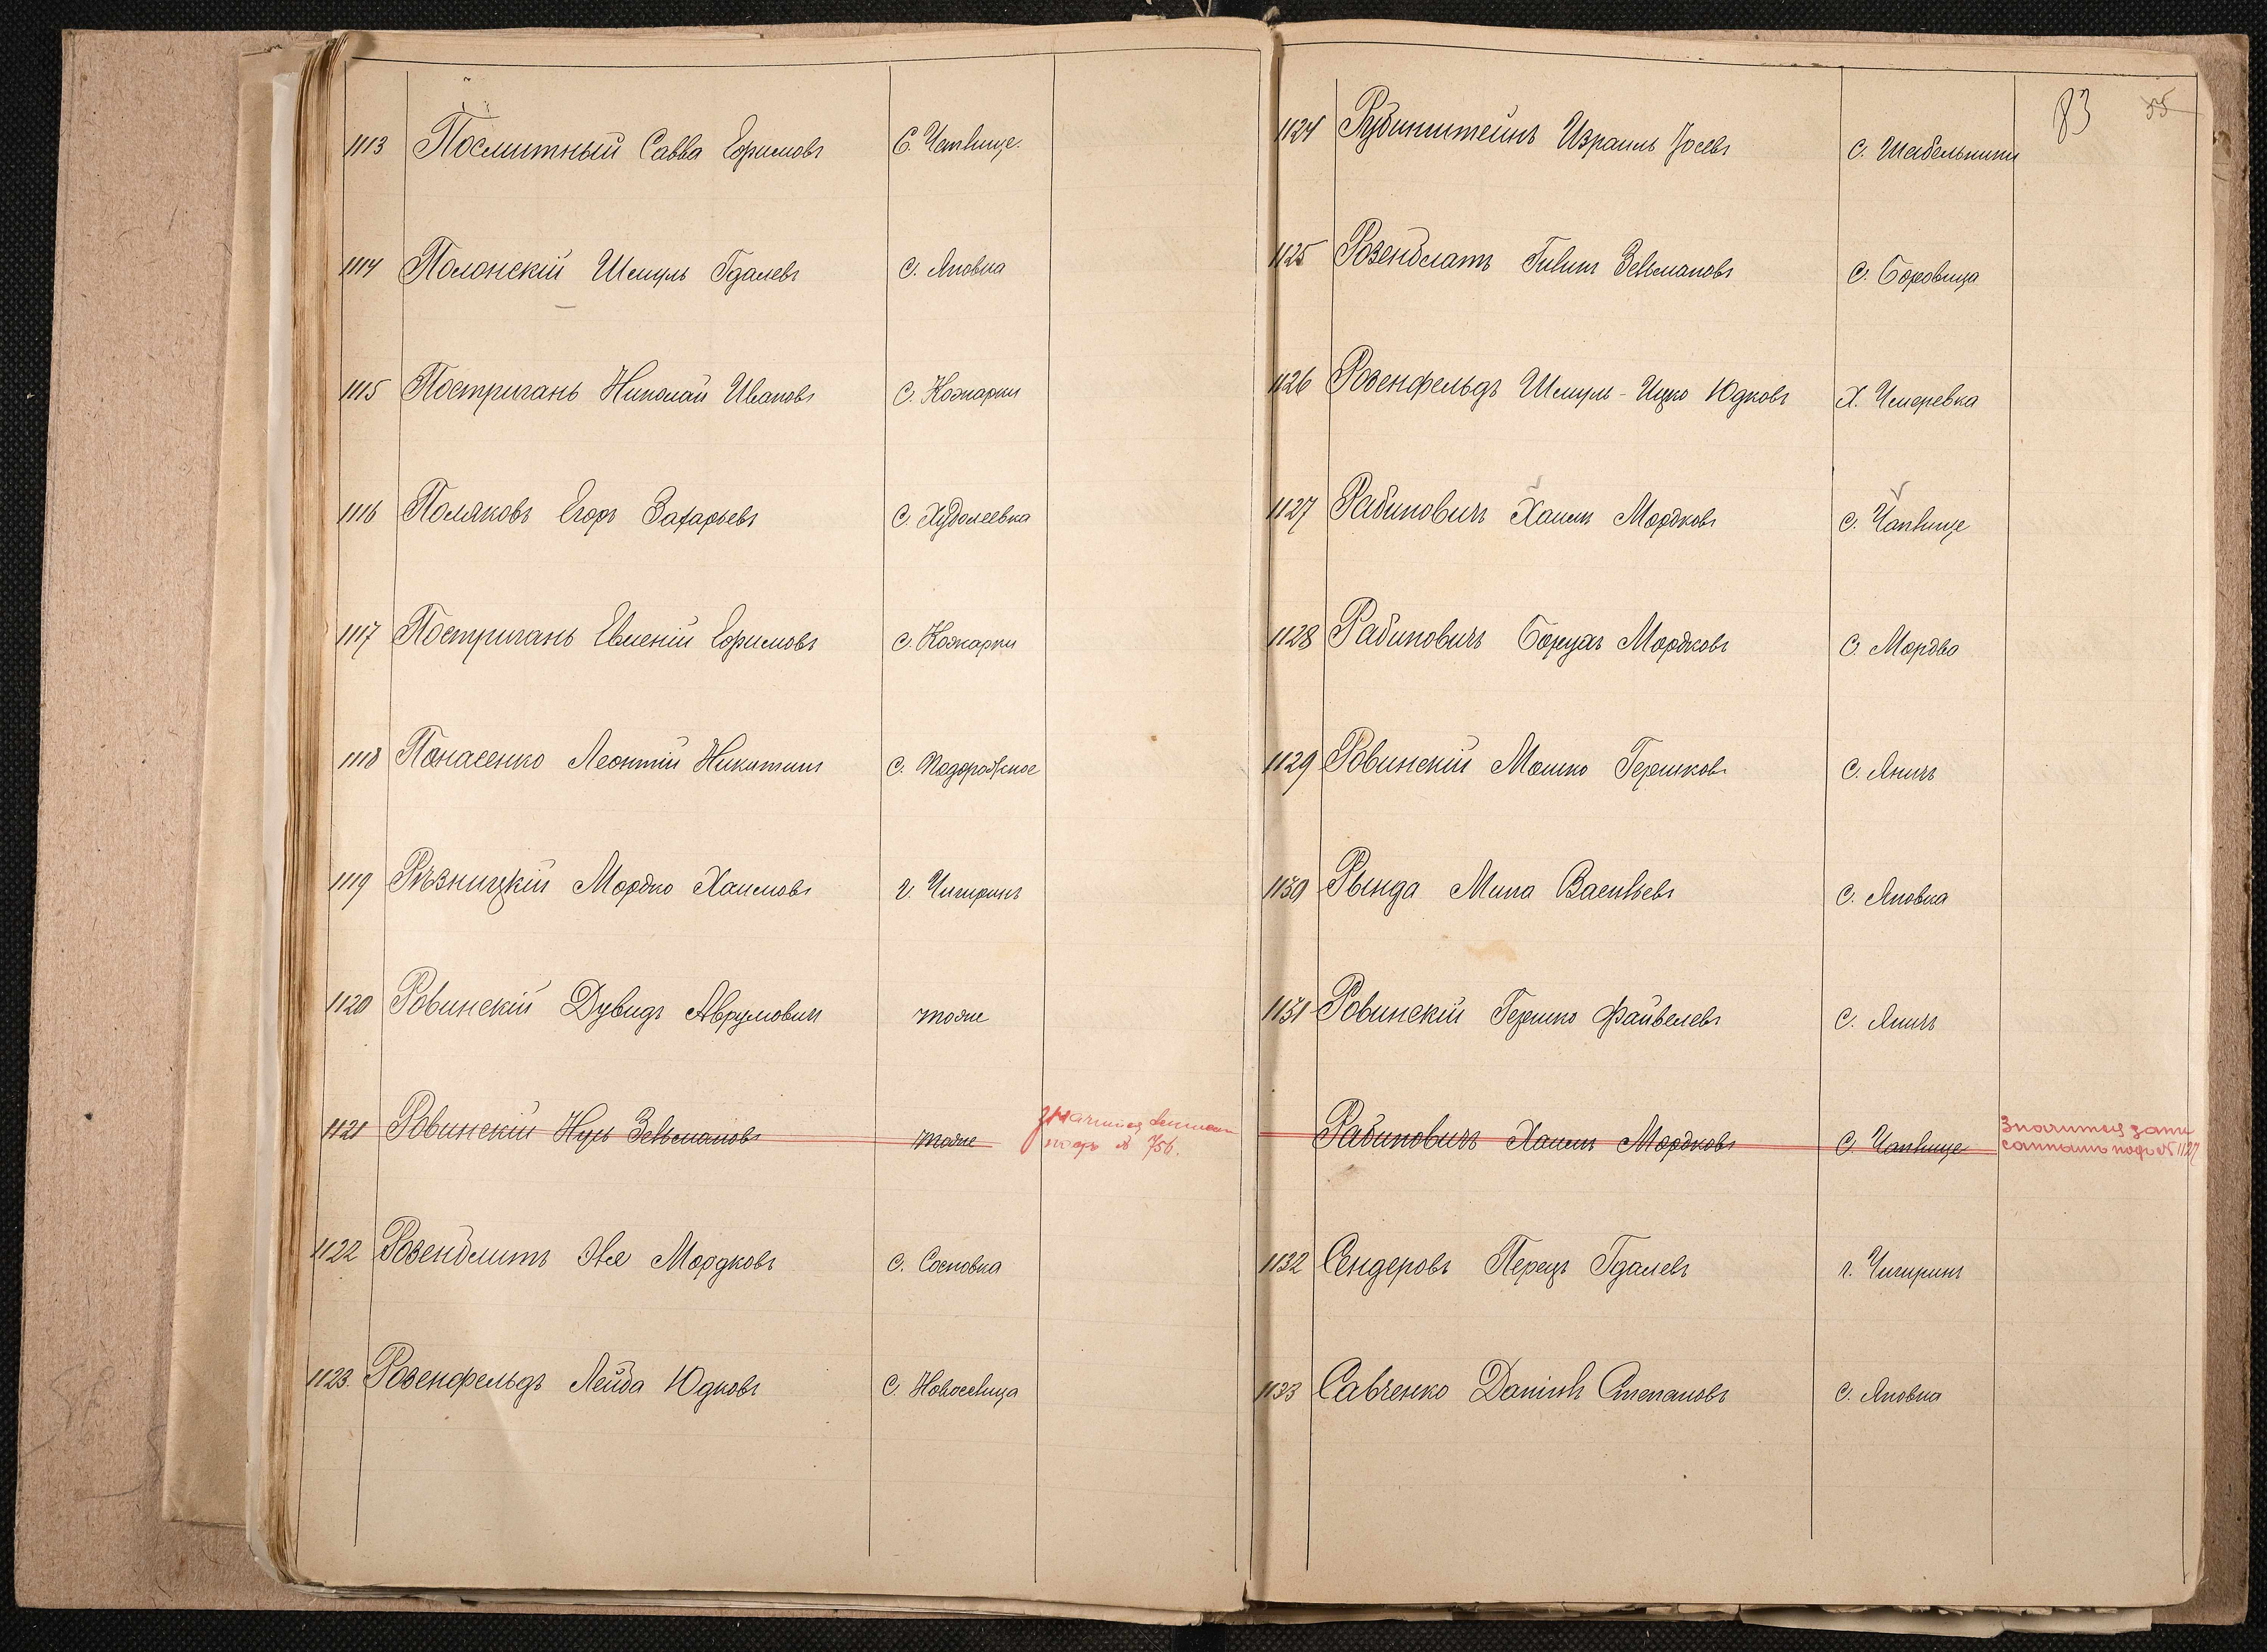 1113 Посмитный Савва Ефимовъ С. Чаплище.
1114 Полонскій Шмуль Гдалевъ С. Яновка
1115 Постригань Николай Ивановъ С. Кожарки
1116 Поляковъ Егоръ Захарьевъ С. Худолеевка
1117 Постригань Евменій Ефимовъ С. Кожарки
1118 Панасенко Леонтій Никитинъ С. Подорожное
1119 Рѣзницкій Мордко Хаимовъ г. Чигиринъ
1120 Ровинскій Дувидъ Аврумовичъ тоже
1121 Ровинскій Нуль Зельмановъ тоже
подъ № 756.
1122 Розенблитъ Эля Мордковъ С. Сосновка
1123. Розенфельдъ Лейба Юдковъ С. Новоселица
83 55
1124 Рубинштейнъ Израиль Іосевъ С. Шабельники
1125 Розенблатъ Зельмановъ С. Боровица
1126 Розенфельдъ Шмуль-Ицко Юдковъ Х. Чмаревка
1127 Рабиновичъ Хаимъ Мордковъ С. Чаплище
1128 Рабиновичъ Борухъ Мордковъ С. Мордва
1129 Ровинскій Мошко Гершковъ С. Яничъ
1130 Рында Мина Васильевъ С. Яновка
1131 Ровинскій Гершко Файвелевъ С. Яничъ
Рабиновичъ Хаимъ Мордковъ С. Чаплище Значится запи
саннымъ подъ № 1127
1132 Сендеровъ Перецъ Гдалевъ г. Чигиринъ
1133 Савченко Даніилъ Степановъ С. Яновка